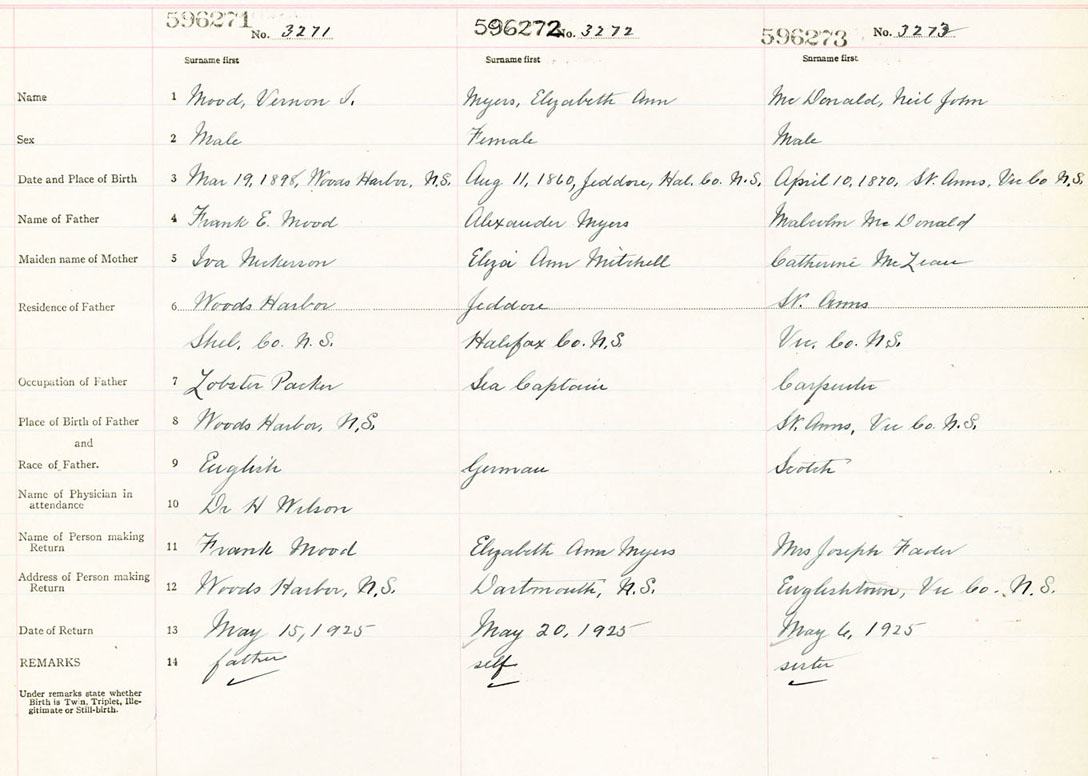 596271 No. 3271 596272 No. 3272 596273 No. 3273
Surname first Surname first Surname first
Name 1 Mood, Vernon I. Myers, Elizabeth Ann McDonald, Neil John
Sex 2 Male Female Male
Date and Place of Birth 3 Mar 19, 1898, Woods Harbor, N.S. Aug 11, 1860, Jeddore, Hal. Co. N.S. April 10, 1870, St. Anns, Vic Co N.S.
Name of Father 4 Frank E. Mood Alexander Myers Malcolm McDonald
Maiden name of Mother 5 Iva Nickerson Eliza Ann Mitchell Catherine McLean
Residence of Father 6 Woods Harbor Jeddore St. Anns
Shel. Co. N.S. Halifax Co. N.S. Vic. Co. N.S.
Occupation of Father 7 Lobster Packer Sea Captain Carpenter
Place of Birth of Father 8 Woods Harbor, N.S. St. Anns, Vic Co. N.S.
and
Race of Father. 9 English German Scotch
Name of Physician in
attendance 10 Dr H Wilson
Name of Person making
Return 11 Frank Mood Elizabeth Ann Myers Mrs Joseph Fader
Address of Person making
Return 12 Woods Harbor, N.S. Dartmouth, N.S. Englishtown, Vic Co. N.S.
Date of Return 13 May 15, 1925 May 20, 1925 May 6, 1925
REMARKS 14 father self sister
Under remarks state whether
Birth is Twin, Triplet, Ille-
gitimate or Still-birth.